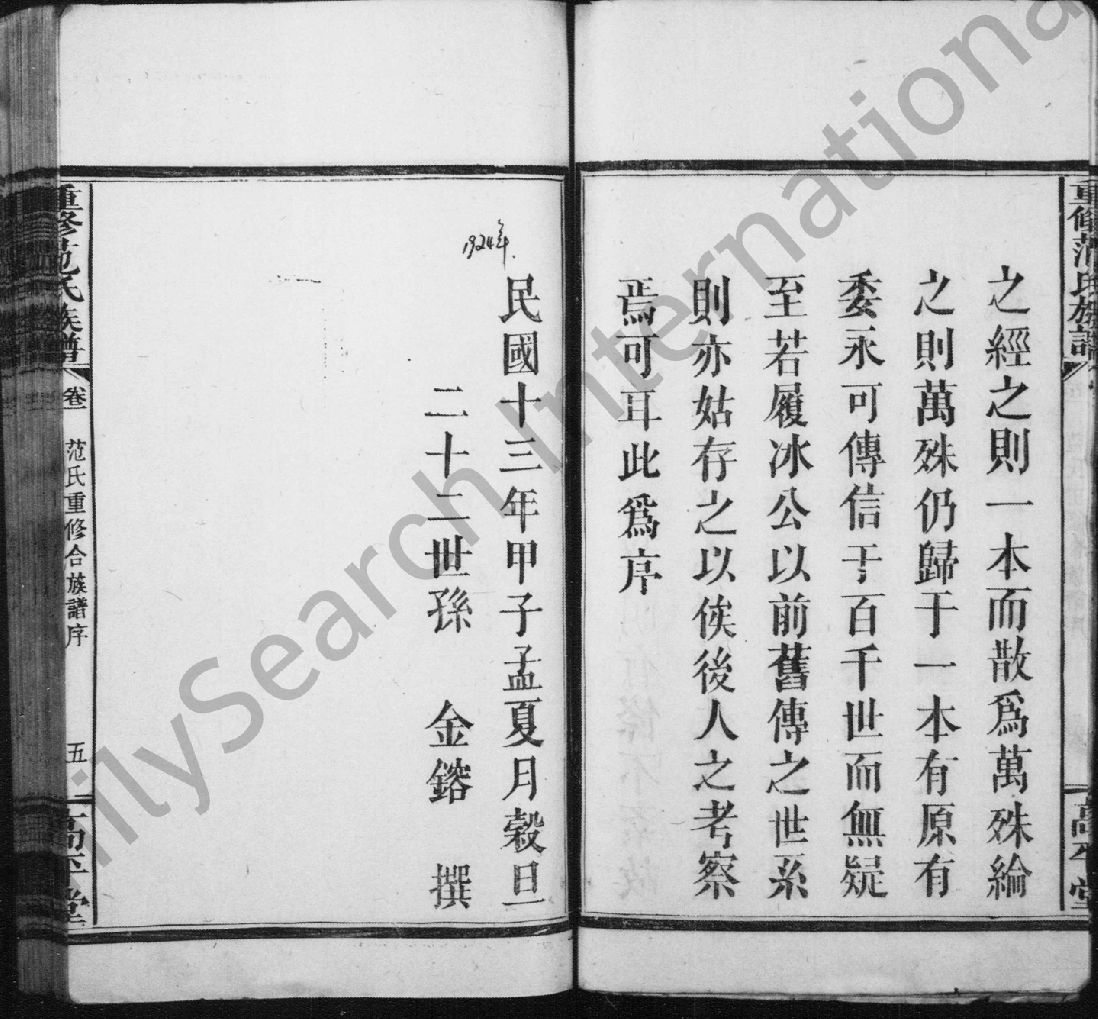 重修范氏族譜
高平堂
之經之則一本而散爲萬殊綸
之則萬殊仍歸于一本有原有
委永可傳信于百千世而無疑
至若履冰公以前舊傳之世系
則亦姑存之以俟後人之考察
焉可耳此爲序
1924年.
民國十三年甲子孟夏月穀旦
二十二世孫 金鎔 撰
重修范氏族譜
卷一
范氏重修合族譜序
五
高平堂
ilySearch International